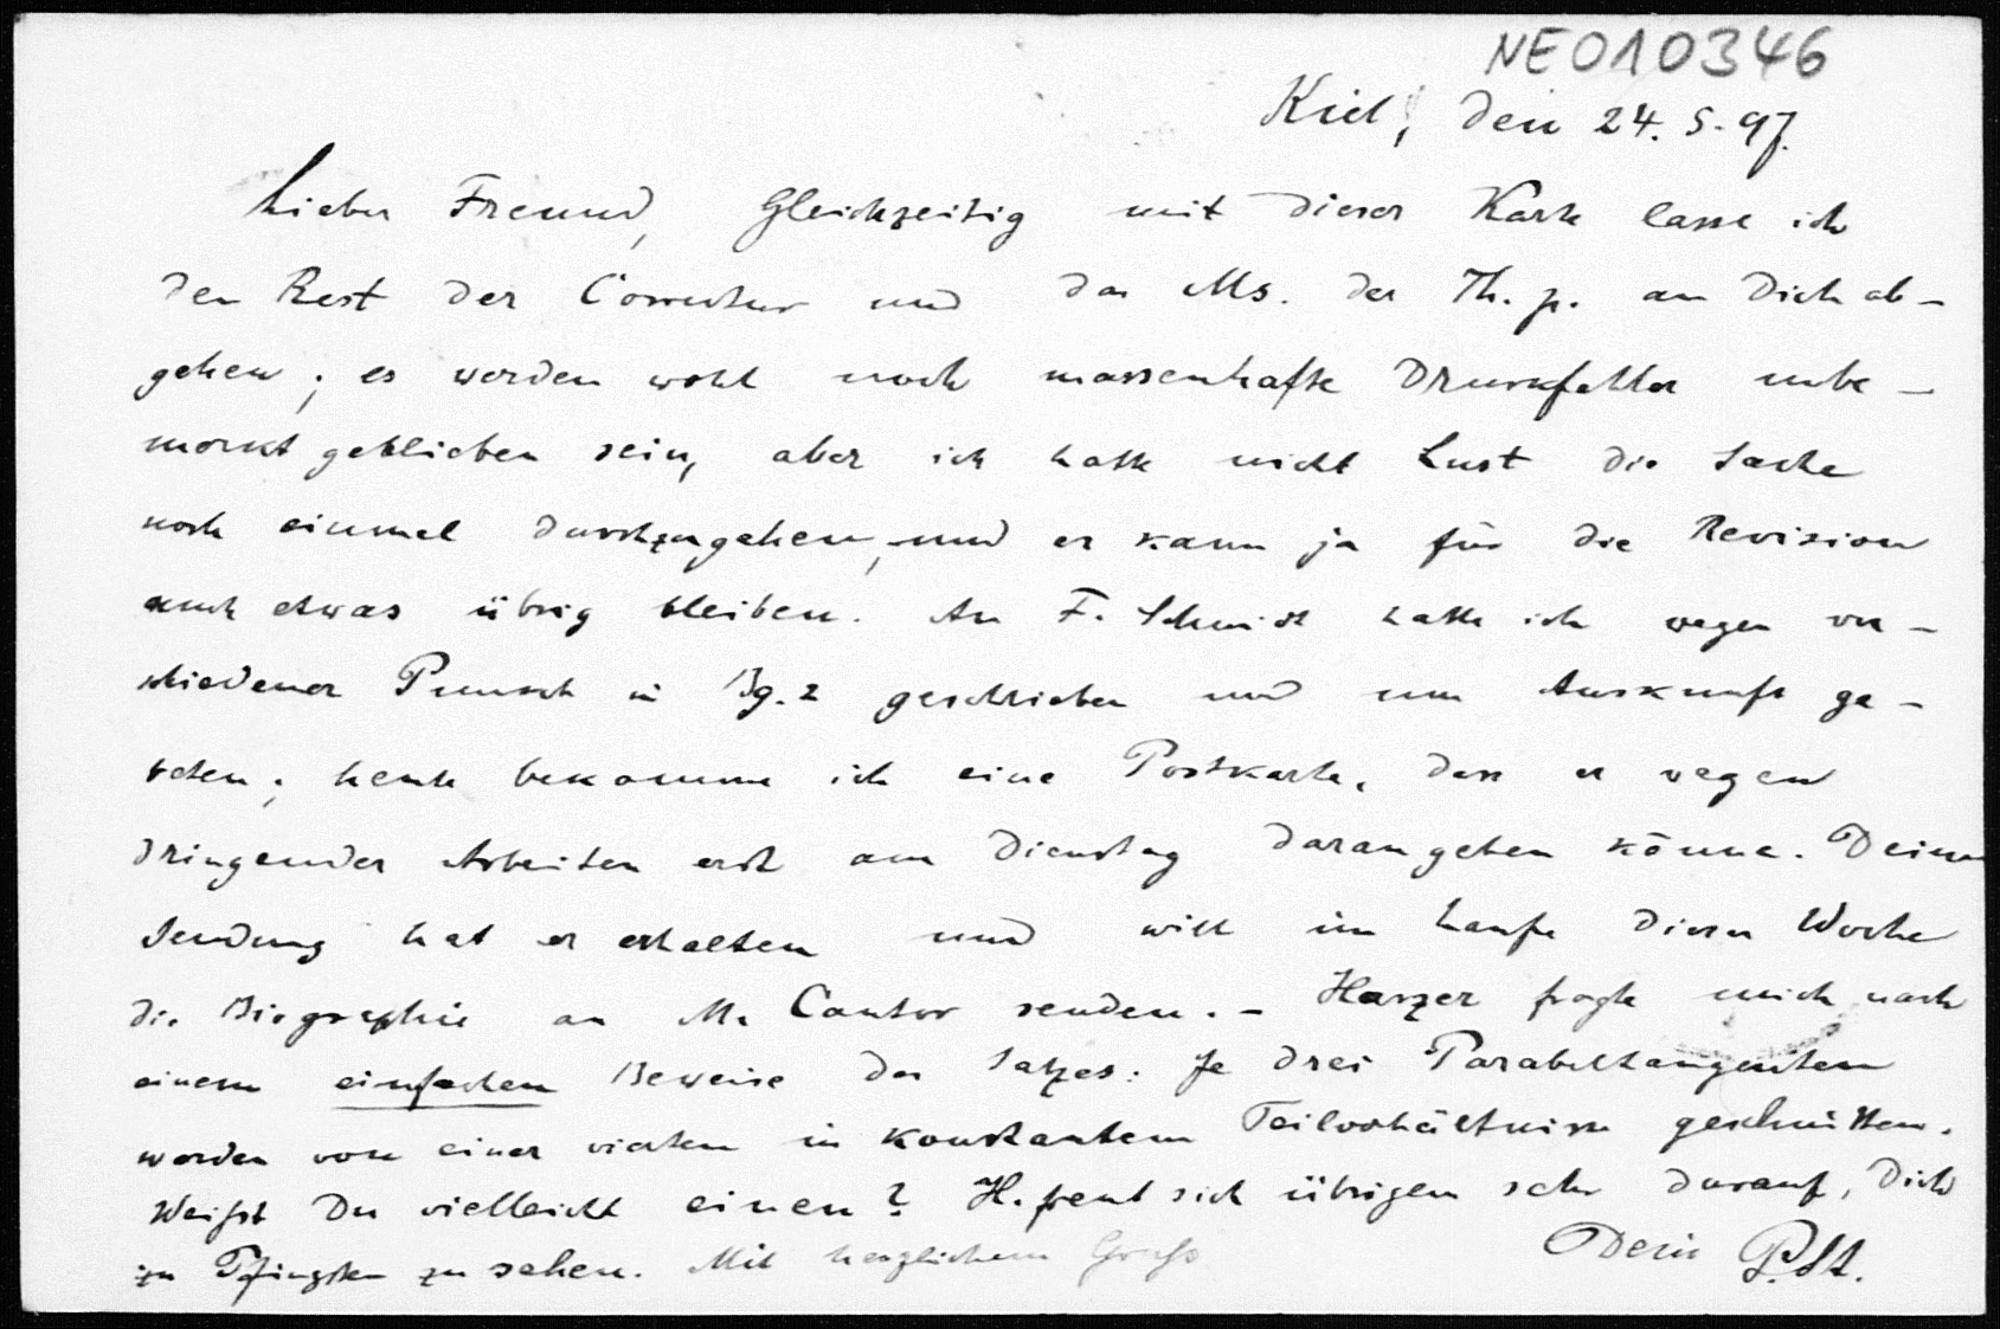 NE010346
Kiel, den 24. 5. 97.
Lieber Freund, Gleichzeitig mit dieser Karte lasse ich
den Rest der Correctur und das Ms. der Th. p. an Dich ab-
gehen; es werden wohl noch massenhafte Druckfehler unbe-
merkt geblieben sein, aber ich hatte nicht Lust die Sache
noch einmal durchzugehen, und es kann ja für die Revision
auch etwas übrig bleiben. An F. Schmidt hatte ich wegen ver-
schiedener Punkte in Bg. 2 geschrieben und um Auskunft ge-
beten; heute bekomme ich eine Postkarte, dass er wegen
dringender Arbeiten erst am Dienstag daran gehen könne. Deine
Sendung hat er erhalten und will im Laufe dieser Woche
die Biographie an M. Cantor senden. - Harzer fragte mich nach
einem einfachen Beweise des Satzes: Je drei Parabeltangenten
werden von einer vierten in konstantem Teilverhältnisse geschnitten.
Weißt Du vielleicht einen? H. freut sich übrigens sehr darauf, Dich
zu Pfingsten zu sehen. Mit herzlichem Gruß
Dein P. St.